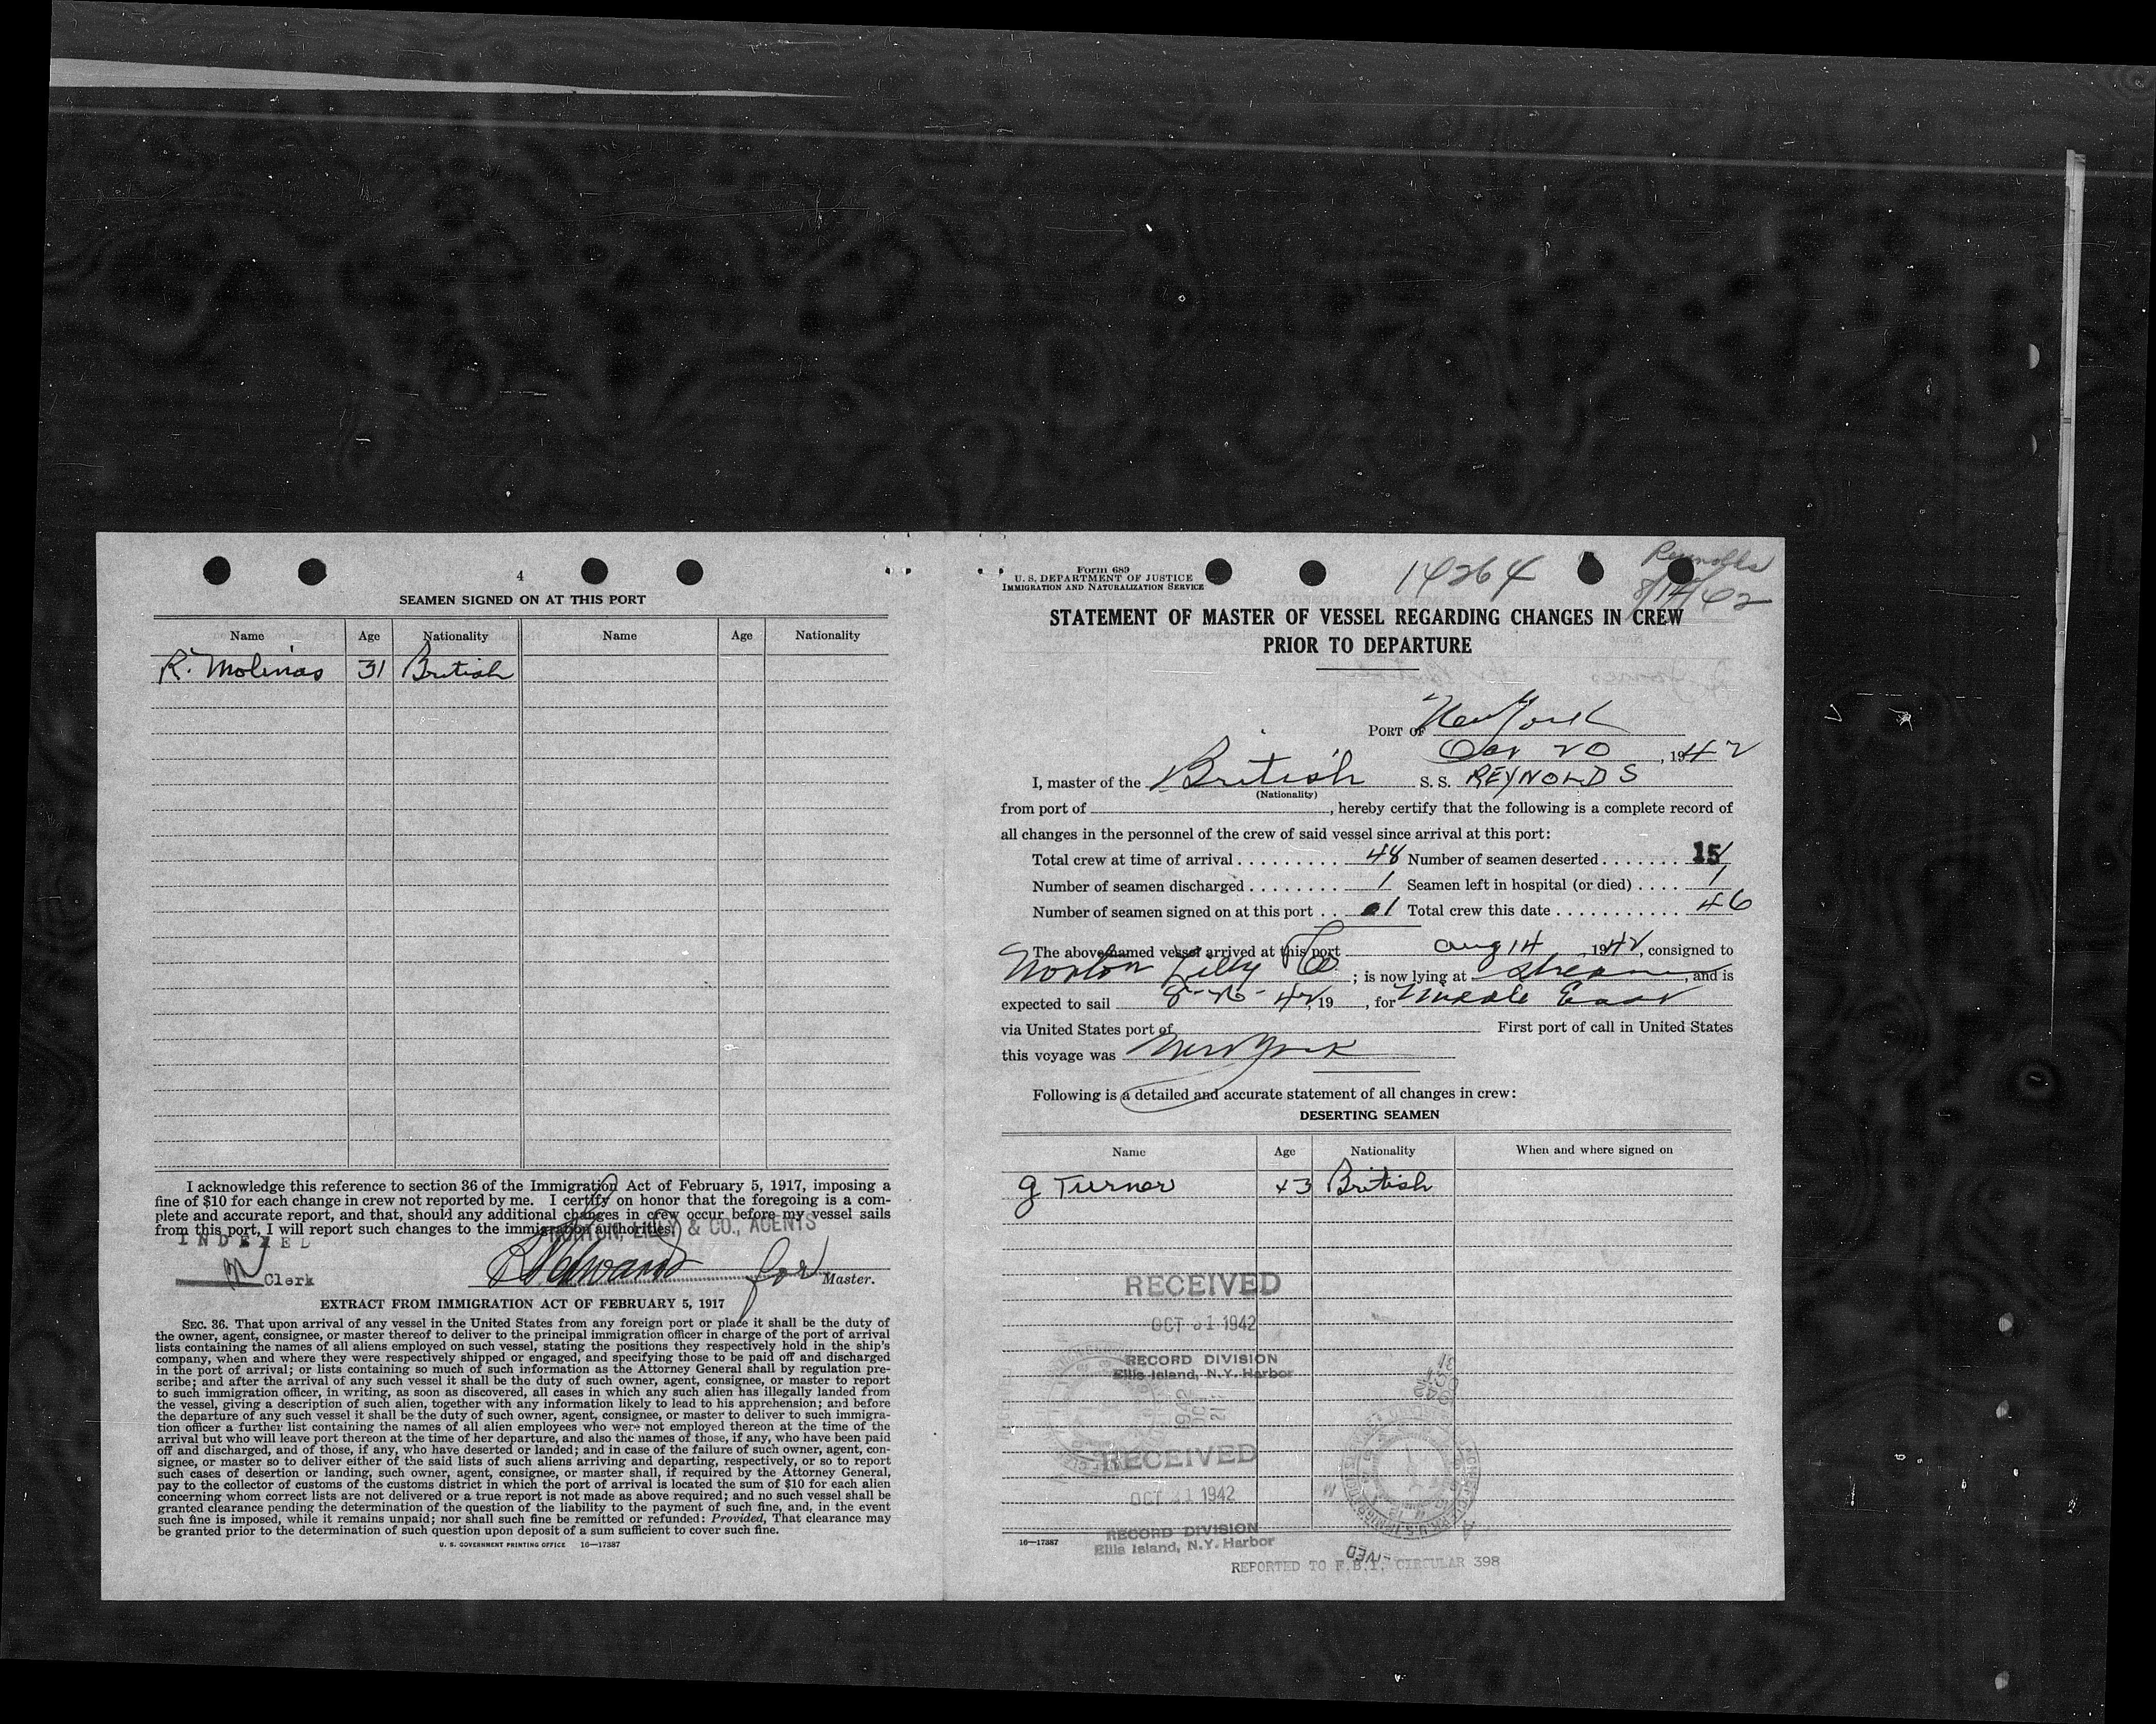 4
SEAMEN SIGNED ON AT THIS PORT
Name Age Nationality Name Age Nationality
R. Molinas 31 British
I acknowledge this reference to section 36 of the Immigration Act of February 5, 1917, imposing a
fine of $10 for each change in crew not reported by me. I certify on honor that the foregoing is a com-
plete and accurate report, and that, should any additional changes in crew occur before my vessel sails
from this port, I will report such changes to the immigration authorities.
NORTON, LILLY & CO., AGENTS
INDEXED
Clerk
for Master.
EXTRACT FROM IMMIGRATION ACT OF FEBRUARY 5, 1917
SEC. 36. That upon arrival of any vessel in the United States from any foreign port or place it shall be the duty of
the owner, agent, consignee, or master thereof to deliver to the principal immigration officer in charge of the port of arrival
lists containing the names of all aliens employed on such vessel, stating the positions they respectively hold in the ship's
company, when and where they were respectively shipped or engaged, and specifying those to be paid off and discharged
in the port of arrival; or lists containing so much of such information as the Attorney General shall by regulation pre-
scribe; and after the arrival of any such vessel it shall be the duty of such owner, agent, consignee, or master to report
to such immigration officer, in writing, as soon as discovered, all cases in which any such alien has illegally landed from
the vessel, giving a description of such alien, together with any information likely to lead to his apprehension; and before
the departure of any such vessel it shall be the duty of such owner, agent, consignee, or master to deliver to such immigra-
tion officer a further list containing the names of all alien employees who were not employed thereon at the time of the
arrival but who will leave port thereon at the time of her departure, and also the names of those, if any, who have been paid
off and discharged, and of those, if any, who have deserted or landed; and in case of the failure of such owner, agent, con-
signee, or master so to deliver either of the said lists of such aliens arriving and departing, respectively, or so to report
such cases of desertion or landing, such owner, agent, consignee, or master shall, if required by the Attorney General,
pay to the collector of customs of the customs district in which the port of arrival is located the sum of $10 for each alien
concerning whom correct lists are not delivered or a true report is not made as above required; and no such vessel shall be
granted clearance pending the determination of the question of the liability to the payment of such fine, and, in the event
such fine is imposed, while it remains unpaid; nor shall such fine be remitted or refunded: Provided, That clearance may
be granted prior to the determination of such question upon deposit of a sum sufficient to cover such fine.
U. S. GOVERNMENT PRINTING OFFICE 16—17387
Form 689
U. S. DEPARTMENT OF JUSTICE
IMMIGRATION AND NATURALIZATION SERVICE
14264
Reynolds
8/14/42
STATEMENT OF MASTER OF VESSEL REGARDING CHANGES IN CREW
PRIOR TO DEPARTURE
PORT OF New York
20, 1942
I, master of the British S. S. REYNOLDS
(Nationality)
from port of , hereby certify that the following is a complete record of
all changes in the personnel of the crew of said vessel since arrival at this port:
Total crew at time of arrival 48 Number of seamen deserted 1
Number of seamen discharged 1 Seamen left in hospital (or died) 1
Number of seamen signed on at this port 1 Total crew this date 46
The above-named vessel arrived at this port Aug 14, 1942, consigned to
Norton Lilly Co; is now lying at Stream, and is
expected to sail 19 , for Middle East
via United States port of First port of call in United States
this voyage was New York
Following is a detailed and accurate statement of all changes in crew:
DESERTING SEAMEN
Name Age Nationality When and where signed on
G Turner 43 British
RECEIVED
OCT 31 1942
RECORD DIVISION
Ellis Island, N.Y. Harbor
RECEIVED
OCT 21 1942
RECORD DIVISION
Ellis Island, N.Y. Harbor
16—17387
REPORTED TO F.B.I. CIRCULAR 398